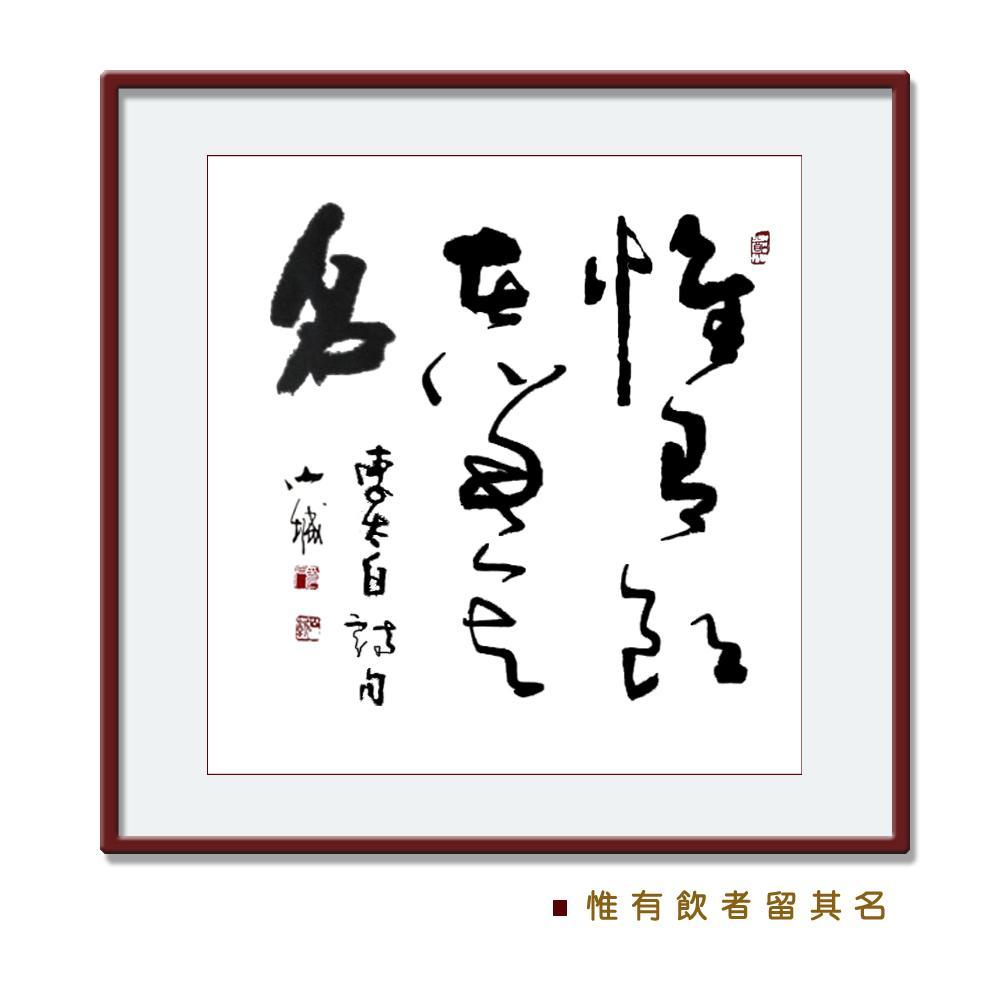 惟有飲
者留其
名
李太白詩句
山城
惟有飲者留其名